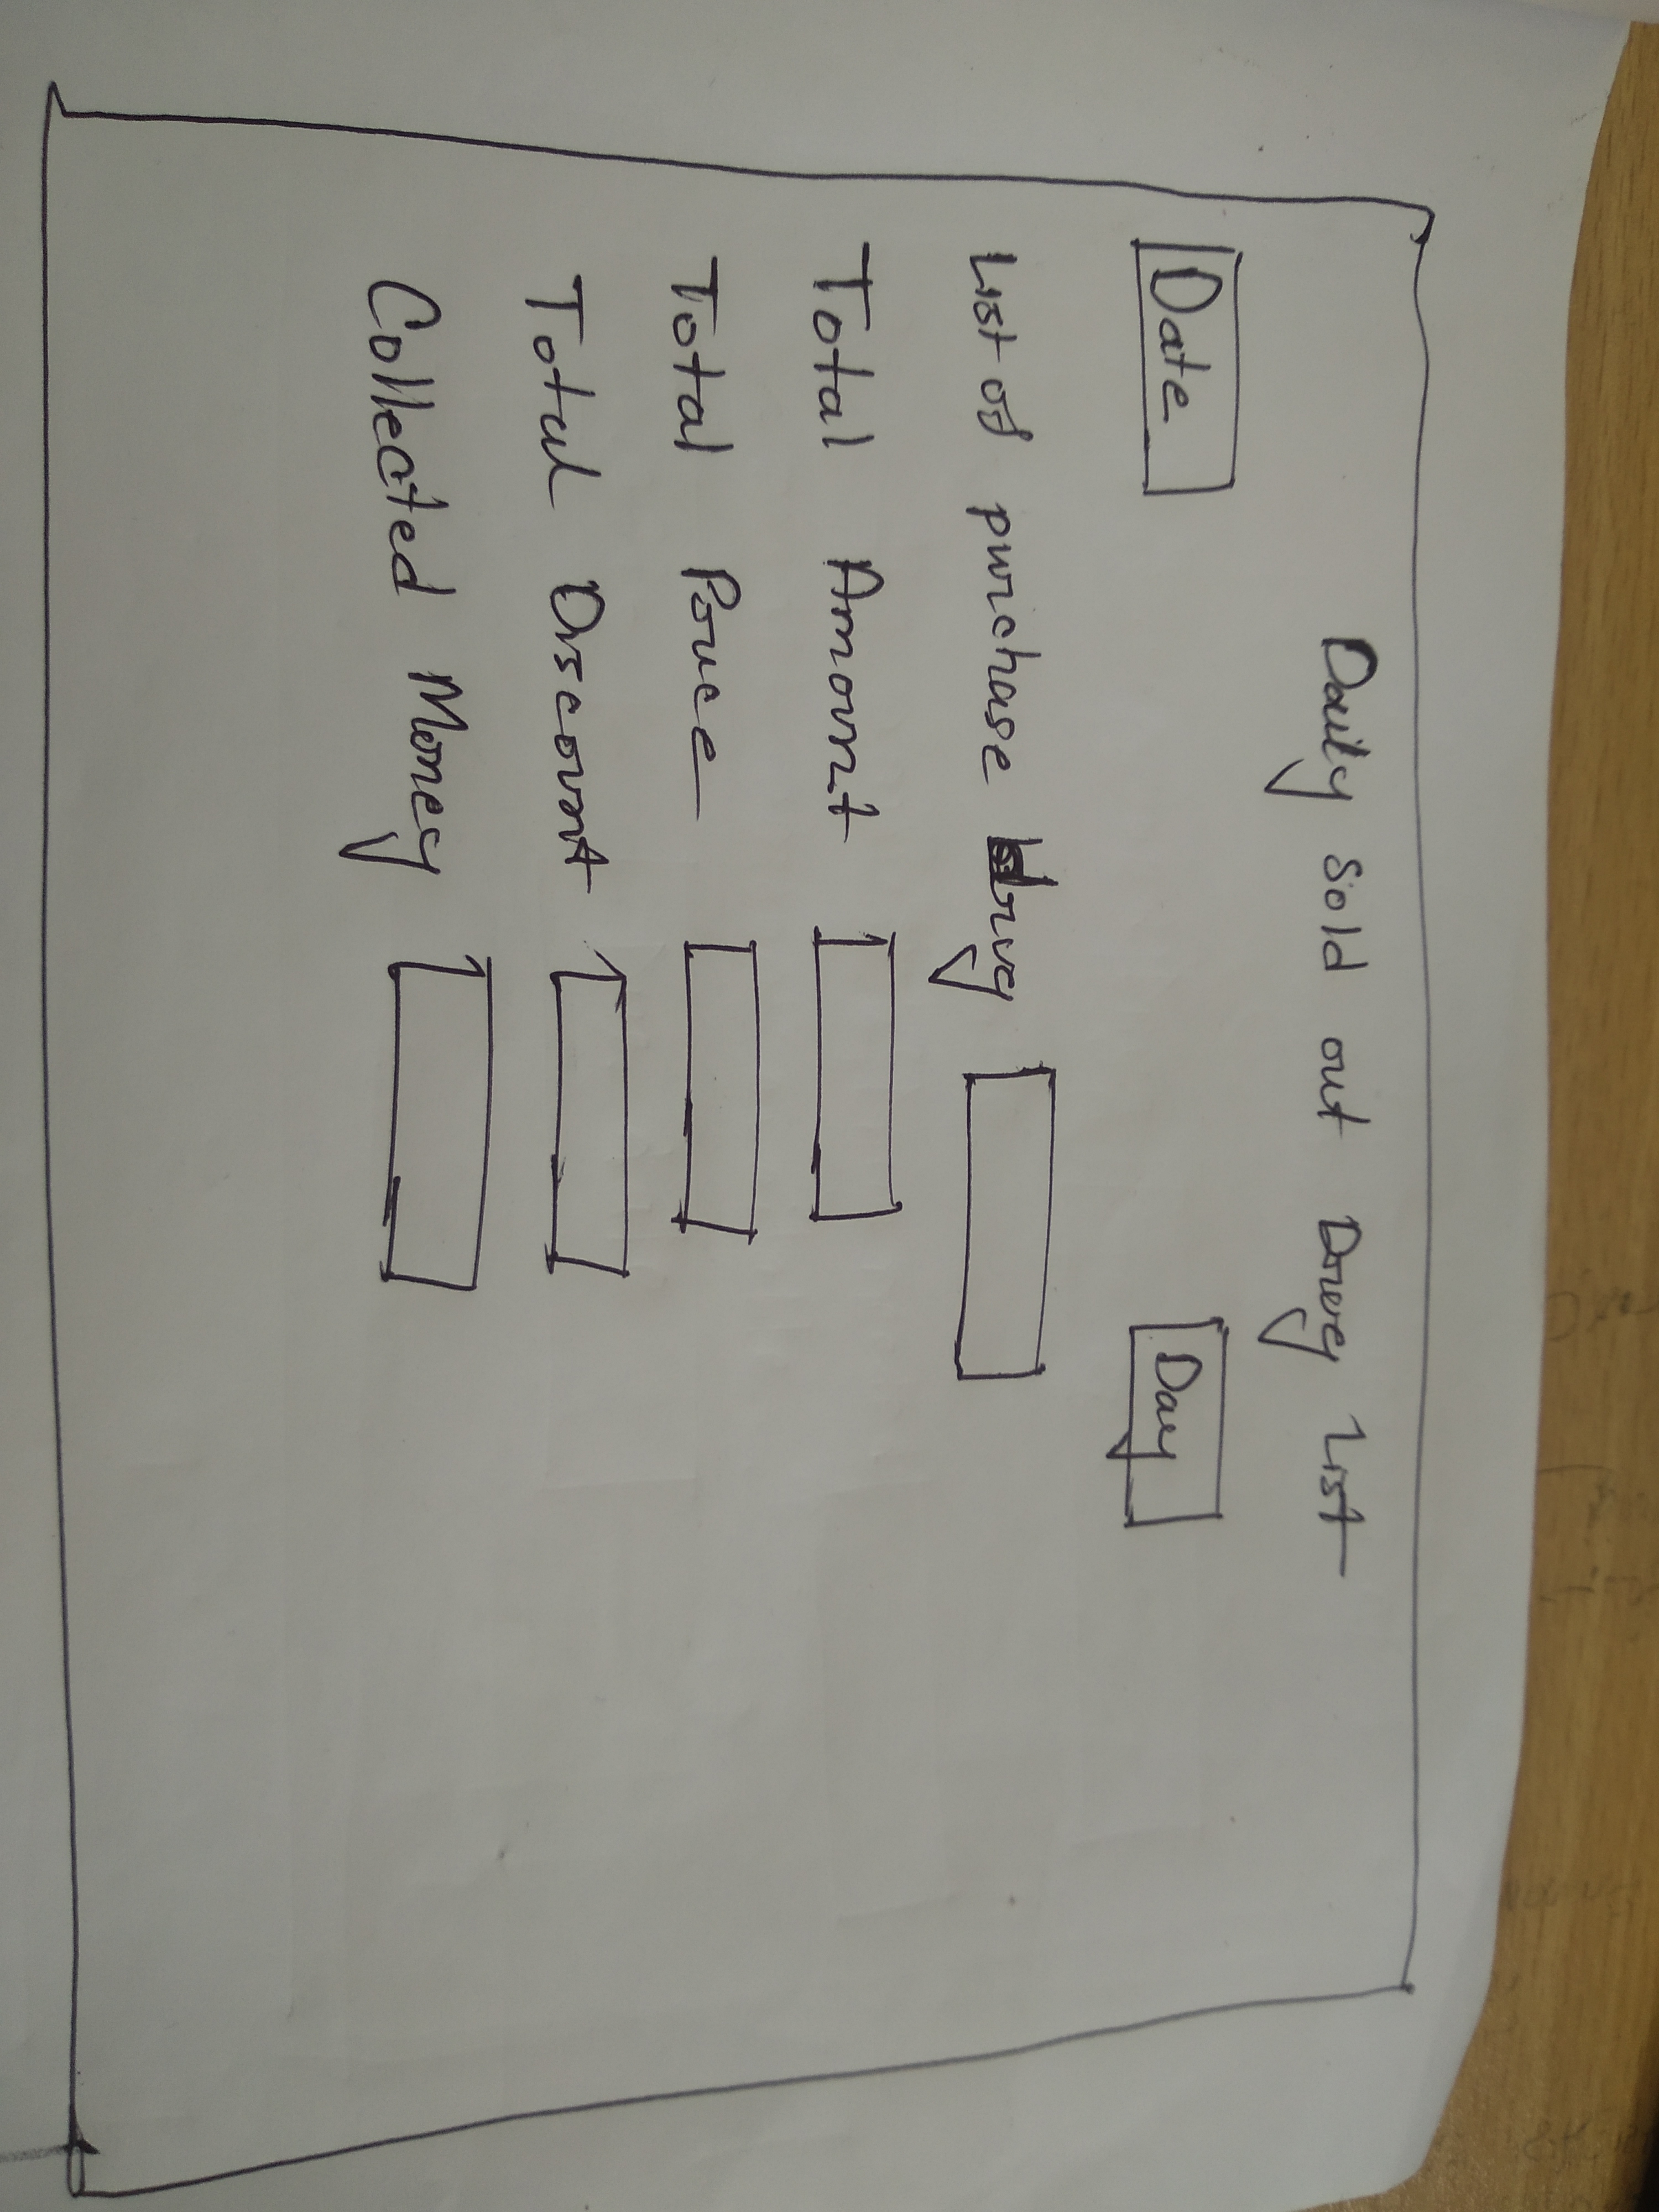 Daily sold out Drug List
Date
Day
List of purchase drug
Total Amount
Total Price
Total Discount
Collected Money